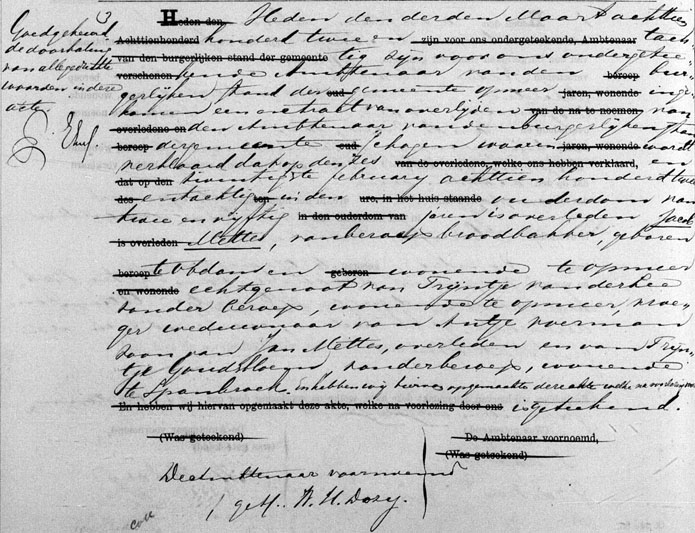 3
Goedgekeurd
de doorhaling
van alle gedrukte
woorden in deze
acte
Heden den, Heden den derden Maart achttien
Achttienhonderd honderd twee en zijn voor ons ondergeteekend, Ambtenaar tach
van den burgerlijken stand der gemeente tig zijn voor ons ondergetee
verschenen kende Ambtenaar van den beroep bur
gerlijken stand der oud gemeente Opmeer jaren, wonende inge
komen een extract van overlijden van de na te noemen van
overledene en den Ambtenaar van den burgerlijken stan
beroep der gemeente oud Schagen waarin jaren, wonende wordt
verklaard dat op den zes van de overledene, welke ons hebben verklaard, en
dat op den twintigste february achttien honderd twee
des en tachtig ten in den ure, in het huis staande ouderdom van
twee en vijftig in den ouderdom van jaren is overleden Jacob
is overleden Mettes, van beroep broodbakker, geboren
beroep te Obdam en geboren wonende te Opmeer
en wonende echtgenoot van Trijntje van der Lee
zonder beroep, wonende te Opmeer, vroe
ger weduwnaar van Antje Veerman
zoon van Jan Mettes, overleden en van Trijn
tje Goudsbloem, zonder beroep, wonende
te Spanbroek. en hebben wij hiervan opgemaakt deze akte welke na voorlezing door ons
En hebben wij hiervan opgemaakt deze akte, welke na voorlezing door ons is geteekend.
(Was geteekend) De Ambtenaar voornoemd,
(Was geteekend)
De Ambtenaar voornoemd
get. N. H. Dosy.